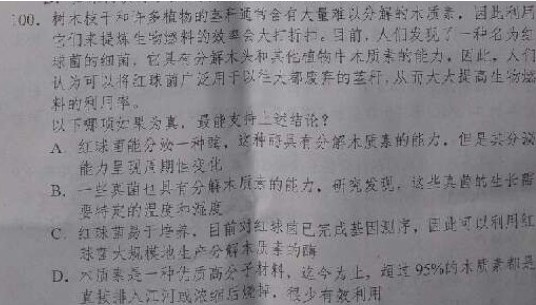 100. 树木枝干和许多植物的茎秆通常含有大量难以分解的木质素，因此利用
它们来提炼生物燃料的效率会大打折扣。目前，人们发现了一种名为红
球菌的细菌，它具有分解木头和其他植物中木质素的能力。因此，人们
认为可以将红球菌广泛用于以往大都废弃的茎秆，从而大大提高生物燃
料的利用率。
以下哪项如果为真，最能支持上述结论？
A. 红球菌能分泌一种酶，这种酶具有分解木质素的能力，但是其分泌
能力呈现周期性变化
B. 一些真菌也具有分解木质素的能力，研究发现，这些真菌的生长需
要特定的温度和湿度
C. 红球菌易于培养，目前对红球菌已完成基因测序，因此可以利用红
球菌大规模地生产分解木质素的酶
D. 木质素是一种优质高分子材料，迄今为止，超过95%的木质素都是
直接排入江河或浓缩后烧掉，很少有效利用